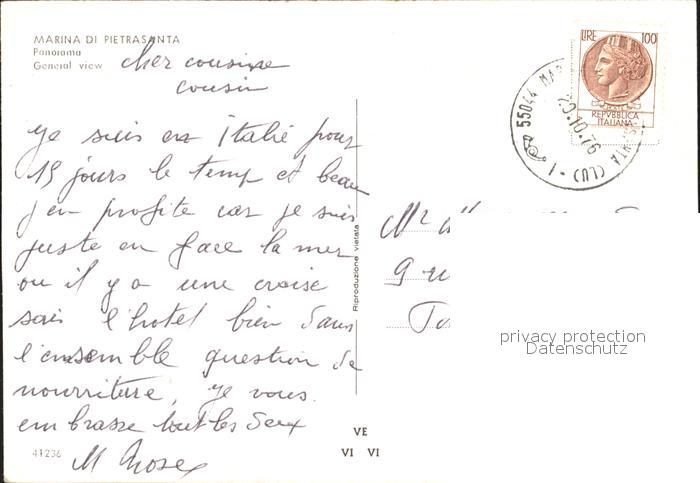 MARINA DI PIETRASANTA
Panorama
General view
cher cousine
cousin
je suis en Italie pour
15 jours le temp et beau
j en profite car je suis
juste en face la mer
ou il y a une croise
sais l'hotel bien dans
l'ensemble question de
nourriture, je vous
embrasse tout les deux
M
41236
Riproduzione vietata
LIRE 100
REPVBBLICA
ITALIANA
55044 MAR
20.10.76
ANTA (LU)
Mr
VE
VI VI
privacy protection
Datenschutz